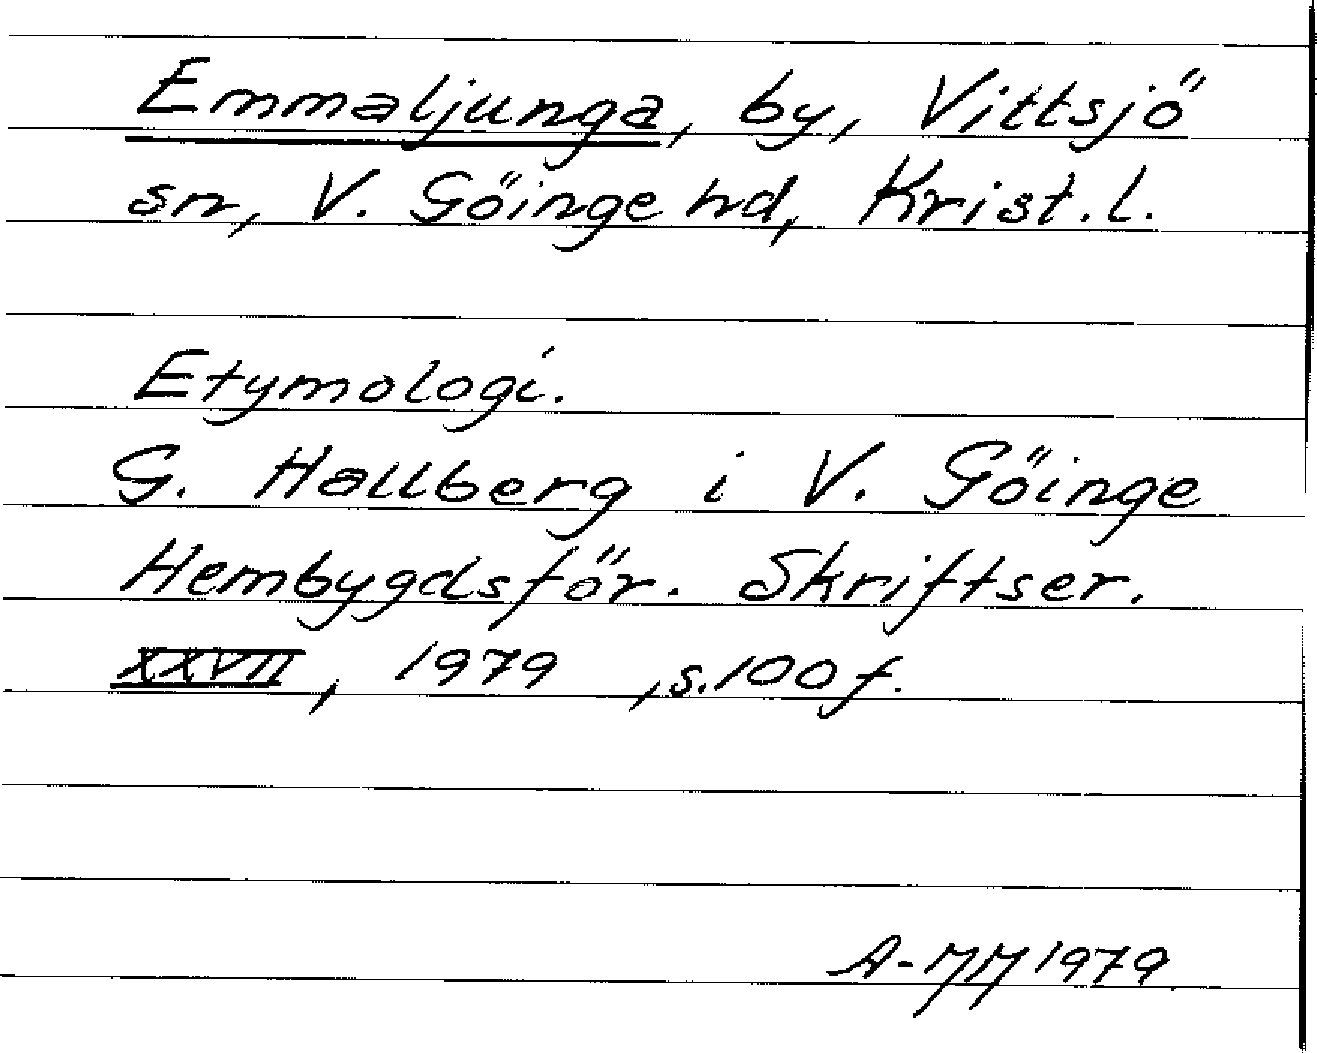 Emmaljunga, by, Vittsjö
sn, V. Göinge hd, Krist. l.
Etymologi.
G. Hallberg i V. Göinge
Hembygdsför. Skriftser.
XXVII, 1979, s. 100 f.
A-MM 1979.